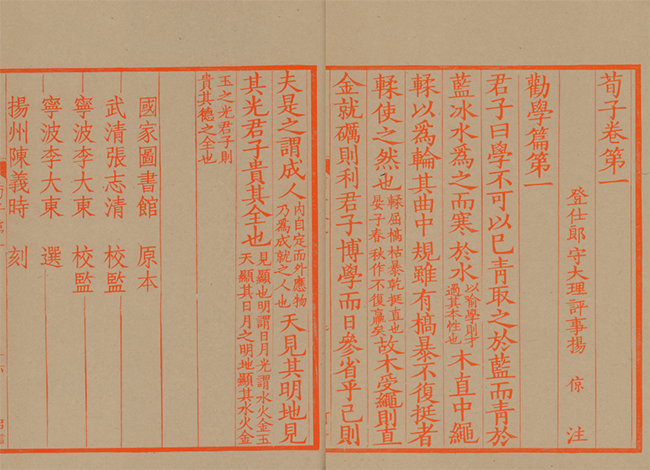 荀子卷第一
登仕郎守大理評事揚 倞 注
勸學篇第一
君子曰學不可以已青取之於藍而青於
藍冰水爲之而寒於水以喻學則才過其本性也木直中繩
輮以爲輪其曲中規雖有槁暴不復挺者
輮使之然也輮屈槁枯暴乾挺直也晏子春秋作不復羸矣故木受繩則直
金就礪則利君子博學而日參省乎己則
夫是之謂成人內自定而外應物乃爲成就之人也天見其明地見
其光君子貴其全也見顯也明謂日月光謂水火金玉天顯其日月之明地顯其水火金
玉之光君子則貴其德之全也
國家圖書館 原本
武清張志清 校監
寧波李大東 校監
寧波李大東 選
揚州陳義時 刻